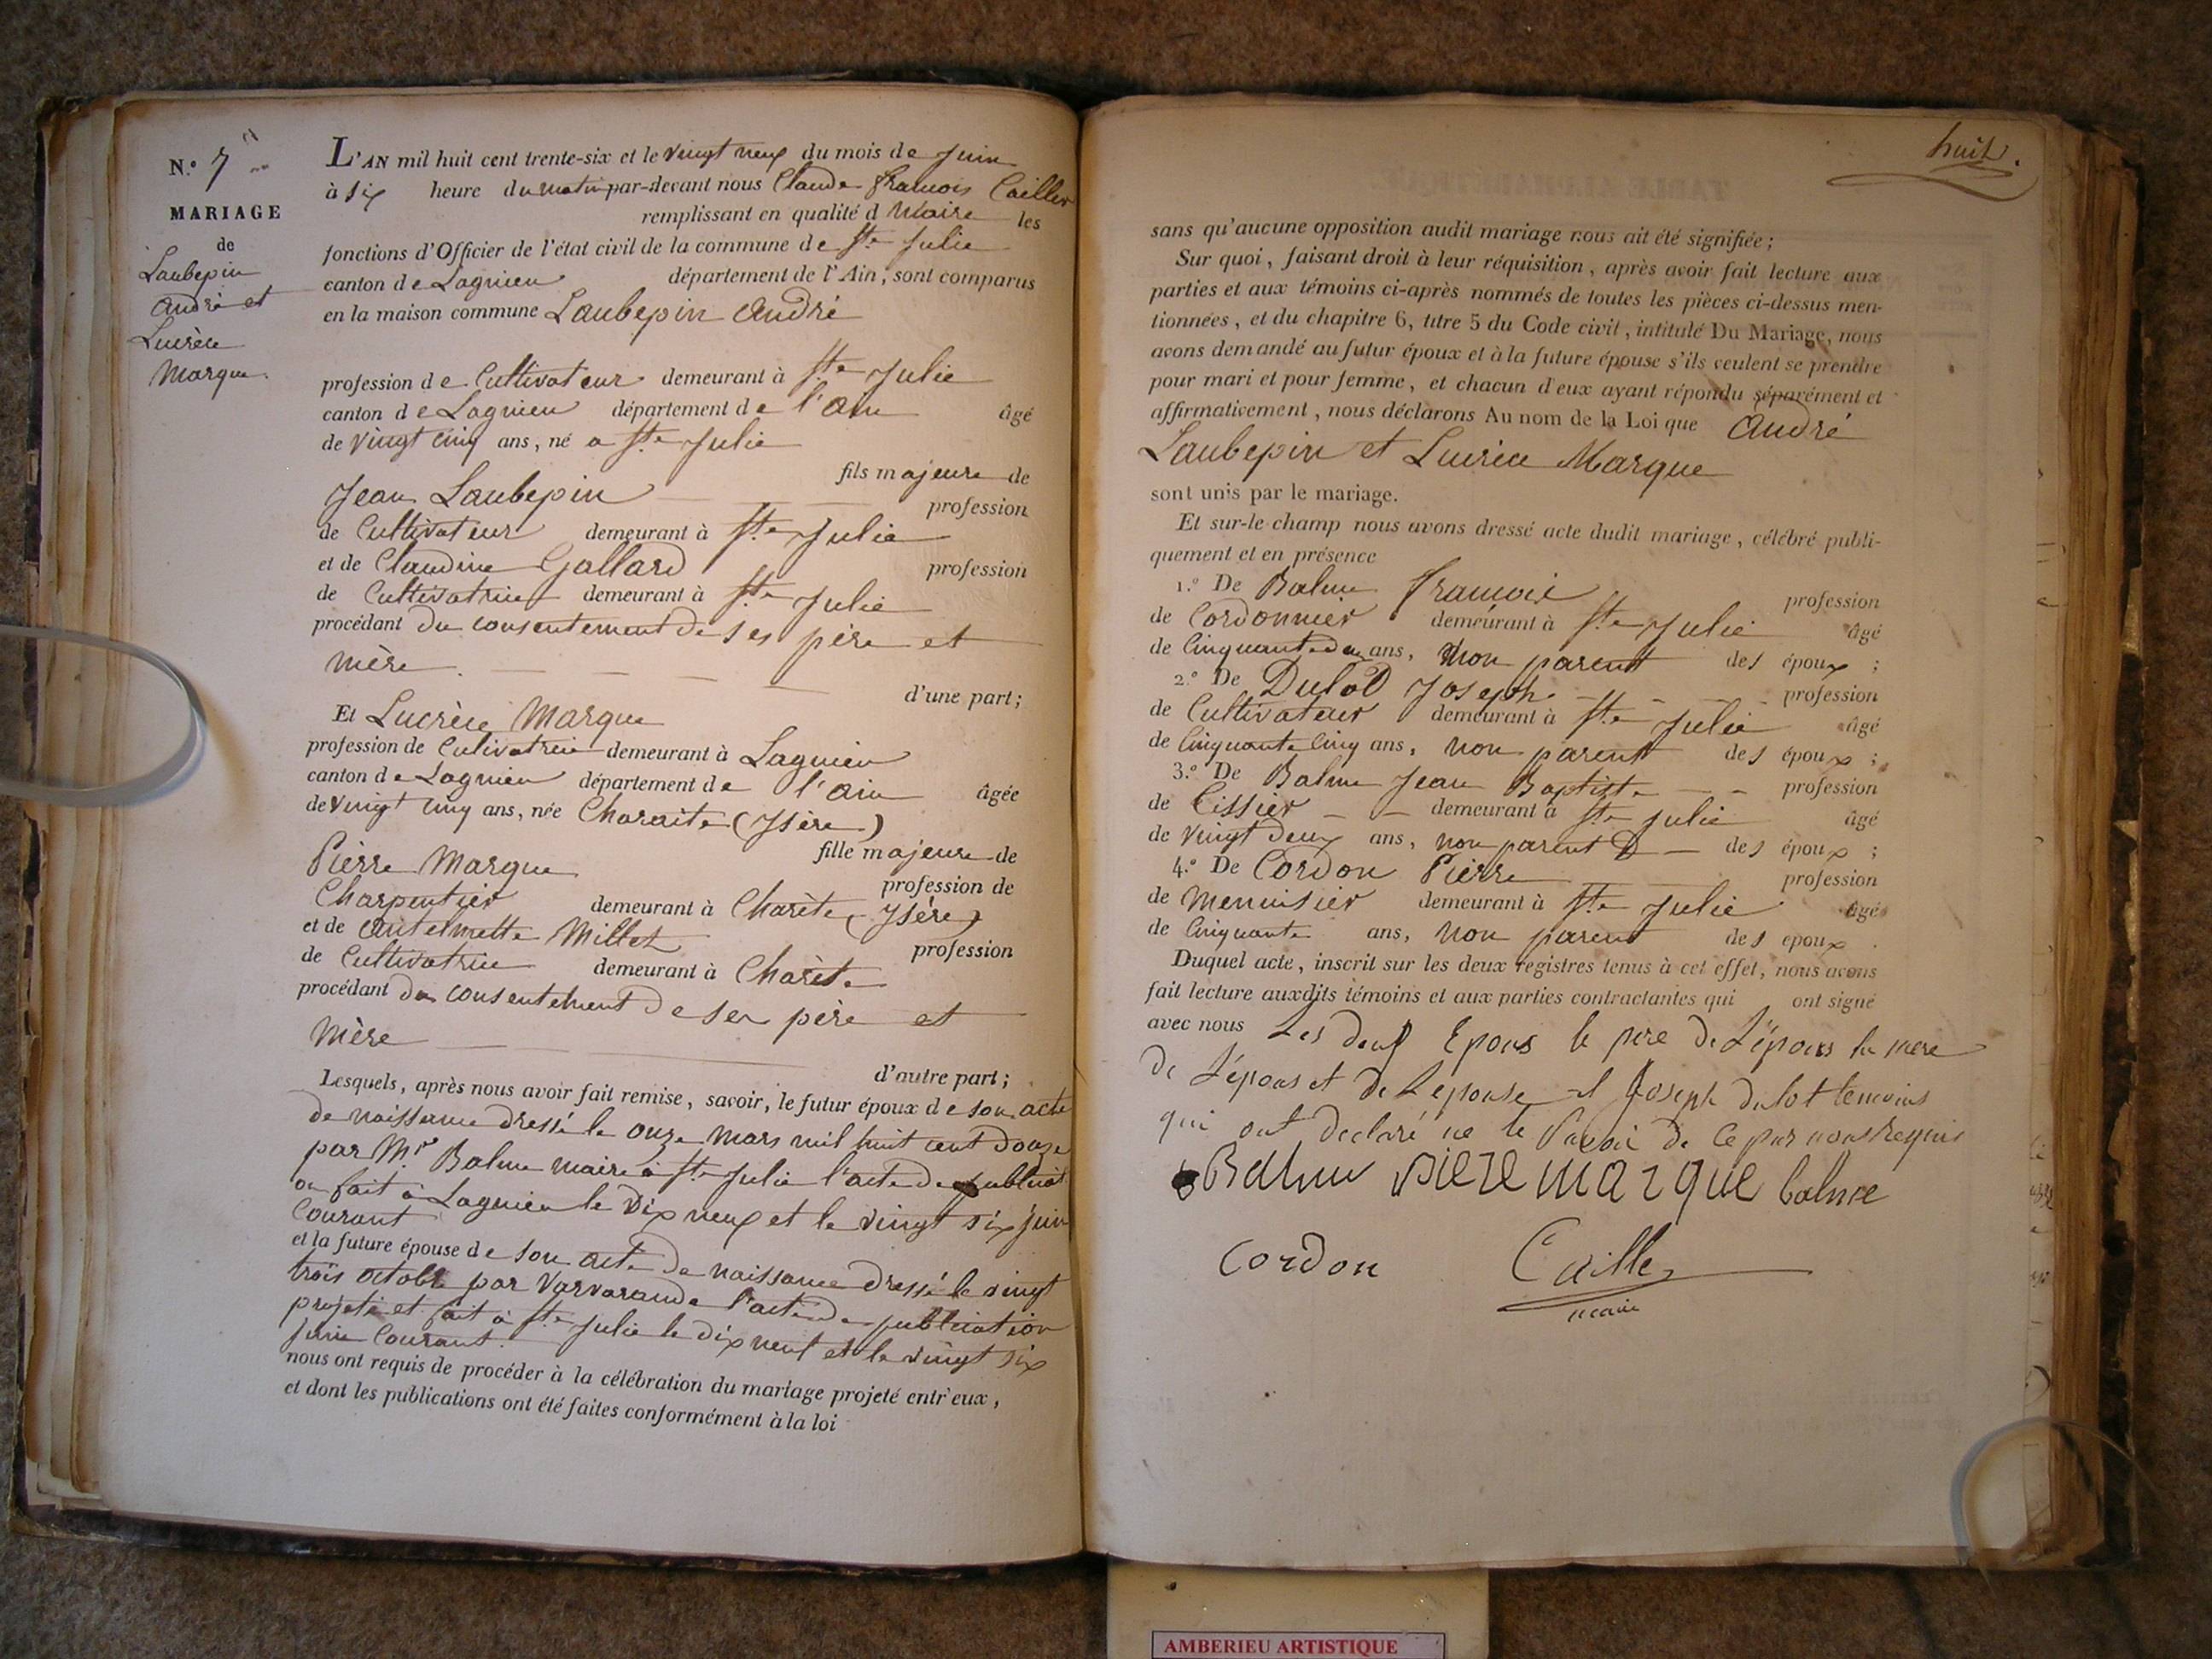 N.º 7
MARIAGE
de
Laubepin
André et
Lucrèce
Marque.
L'AN mil huit cent trente-six et le vingt neuf du mois de Juin
à six heure du matin par-devant nous Claude francois Cailler
remplissant en qualité d Maire les
fonctions d'Officier de l'état civil de la commune de Ste Julie
canton de Lagnieu département de l'Ain, sont comparus
en la maison commune Laubepin André
profession de Cultivateur demeurant à Ste Julie
canton de Lagnieu département de l'Ain âgé
de vingt cinq ans, né a Ste Julie
fils majeure de
Jean Laubepin profession
de Cultivateur demeurant à Ste Julie
et de Claudine Gallard profession
de Cultivatrice demeurant à Ste Julie
procédant du consentement de ses père et
mère.
d'une part;
Et Lucrèce Marque
profession de Culivatrice demeurant à Lagnieu
canton de Lagnieu département de l'ain âgée
de vingt cinq ans, née Charaite (Isère)
fille majeure de
Pierre Marque profession de
Charpentier demeurant à Charète (Isère)
et de Antelmette Millet profession
de Cultivatrice demeurant à Charète
procédant du consentement de ses père et
Mère
d'autre part;
Lesquels, après nous avoir fait remise, savoir, le futur époux de son acte
de naissance dressé le onze mars mil huit cent douze
par Mr Balme maire à Ste Julie l'acte de publicat
on fait à Lagnieu le dix neuf et le vingt six juin
Courant
et la future épouse de son acte de naissance dressé le vingt
trois octobre par Varvarande l'acte de publication
projeté et fait à Ste Julie le dix neuf et le vingt six
juin Courant.
nous ont requis de procéder à la célébration du mariage projeté entr'eux,
et dont les publications ont été faites conformément à la loi
huit.
sans qu'aucune opposition audit mariage nous ait été signifiée;
Sur quoi, faisant droit à leur réquisition, après avoir fait lecture aux
parties et aux témoins ci-après nommés de toutes les pièces ci-dessus men-
tionnées, et du chapitre 6, titre 5 du Code civil, intitulé Du Mariage, nous
avons demandé au futur époux et à la future épouse s'ils veulent se prendre
pour mari et pour femme, et chacun d'eux ayant répondu séparément et
affirmativement, nous déclarons Au nom de la Loi que André
Laubepin et Lucrèce Marque
sont unis par le mariage.
Et sur-le-champ nous avons dressé acte dudit mariage, célébré publi-
quement et en présence
1.º De Balme francois profession
de Cordonnier demeurant à Ste Julie âgé
de Cinquante deux ans, Non parent des époux;
2.º De Dulot Joseph profession
de Cultivateur demeurant à Ste Julie âgé
de Cinquante Cinq ans, non parent des époux;
3.º De Balme Jean Baptiste profession
de Tissier demeurant à Ste Julie âgé
de vingt deux ans, non parent D des époux;
4.º De Cordon Pierre profession
de Menuisier demeurant à Ste Julie âgé
de Cinquante ans, Non parent des epoux.
Duquel acte, inscrit sur les deux registres tenus à cet effet, nous avons
fait lecture auxdits témoins et aux parties contractantes qui ont signé
avec nous Les deux Epous le père De L'épous la mere
De L'épous et De Lepouse et Joseph dulot temoins
qui ont declaré ne le savoir de ce par nous Requis
Balme piere marque balme
Cordon Caille
maire
AMBERIEU ARTISTIQUE